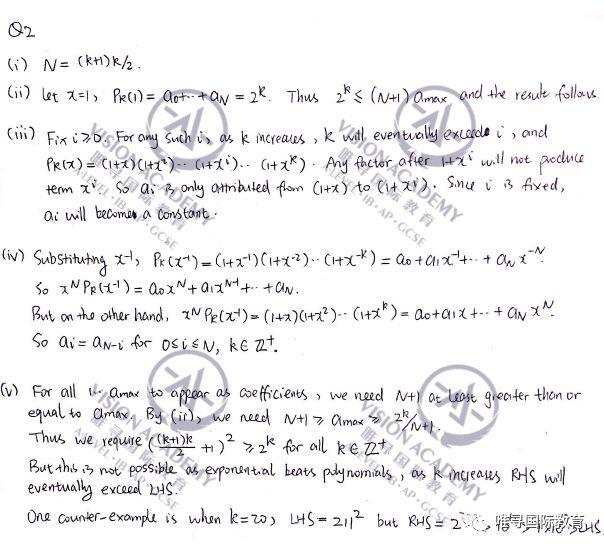 Q2
(i) N = (k+1)k/2.
(ii) Let x=1, Pk(1) = a0+...+aN = 2^k. Thus 2^k ≤ (N+1) amax and the result follows.
(iii) Fix i≥0. For any such i, as k increases, k will eventually exceeds i, and
Pk(x) = (1+x)(1+x²)...(1+x^i)...(1+x^k). Any factor after 1+x^i will not produce
term x^i. So ai is only attributed from (1+x) to (1+x^i). Since i is fixed,
ai will becomes a constant.
(iv) Substituting x^-1, Pk(x^-1) = (1+x^-1)(1+x^-2)...(1+x^-k) = a0+a1x^-1+...+aN x^-N.
So x^N Pk(x^-1) = a0x^N+a1x^N-1+...+aN.
But on the other hand, x^N Pk(x^-1) = (1+x)(1+x²)...(1+x^k) = a0+a1x+...+aN x^N.
So ai = aN-i for 0≤i≤N, k∈Z+.
(v) For all 1... amax to appear as coefficients, we need N+1 at least greater than or
equal to amax. By (ii), we need N+1 ≥ amax ≥ 2^k/N+1.
Thus we require ((k+1)k/2 +1)² ≥ 2^k for all k∈Z+
But this is not possible as exponential beats polynomials, as k increases RHS will
eventually exceed LHS.
One counter-example is when k=20, LHS = 211² but RHS =
VISION ACADEMY
唯寻国际教育
A-LEVEL·IB·AP·GCSE
VISION ACADEMY
唯寻国际教育
A-LEVEL·IB·AP·GCSE
VISION ACADEMY
唯寻国际教育
A-LEVEL·IB·AP·GCSE
VISION ACADEMY
唯寻国际教育
A-LEVEL·IB·AP·GCSE
唯寻国际教育